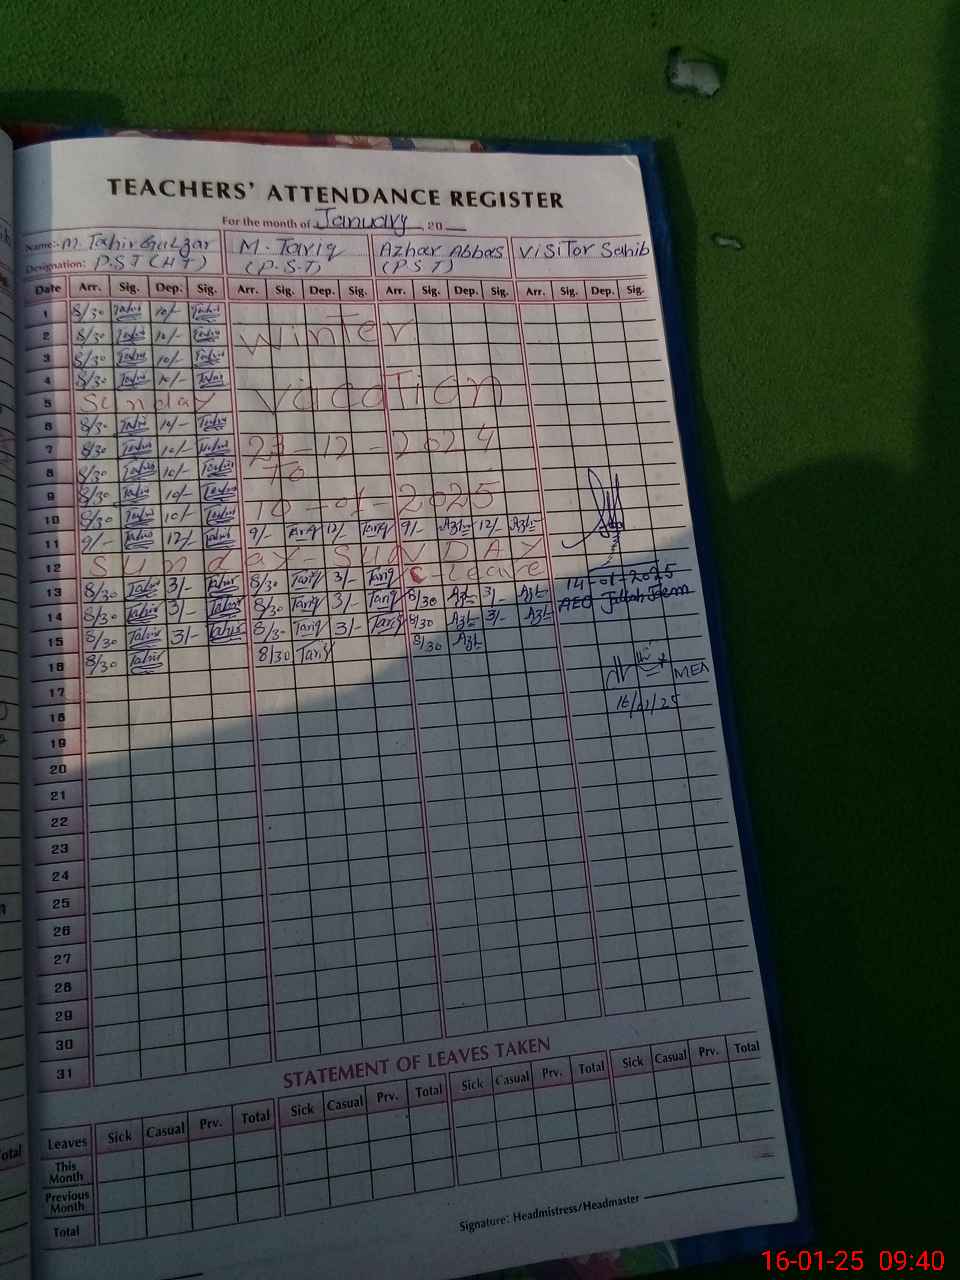 TEACHERS' ATTENDANCE REGISTER
For the month of January 20
Name:- M. Tahir Gulzar M. Tariq Azhar Abbas Visitor Sahib
Designation: P.S.T (H T) (P.S.T) (P.S.T)
Date Arr. Sig. Dep. Sig. Arr. Sig. Dep. Sig. Arr. Sig. Dep. Sig. Arr. Sig. Dep. Sig.
1 8/30 Tahir 10/- Tahir
2 8/30 Tahir 10/- Tahir Winter
3 8/30 Tahir 10/- Tahir
4 8/30 Tahir 10/- Tahir Vacation
5 Sunday
6 8/30 Tahir 10/- Tahir
7 8/30 Tahir 10/- Tahir 23-12-2024
8 8/30 Tahir 10/- Tahir To
9 8/30 Tahir 10/- Tahir 10-01-2025
10 8/30 Tahir 10/- Tahir
11 9/- Tahir 12/- Tahir 9/- Tariq 12/- Tariq 9/- Azhr 12/- Azhr
12 Sunday - SUNDAY
13 8/30 Tahir 3/- Tahir 8/30 Tariq 3/- Tariq C-Leave
14 8/30 Tahir 3/- Tahir 8/30 Tariq 3/- Tariq 8/30 Azhr 3/- Azhr 14-01-2025
AEO
15 8/30 Tahir 3/- Tahir 8/30 Tariq 3/- Tariq 8/30 Azhr 3/- Azhr
16 8/30 Tahir 8/30 Tariq 8/30 Azhr MEA
17 16/01/25
18
19
20
21
22
23
24
25
26
27
28
29
30
31
STATEMENT OF LEAVES TAKEN
Leaves Sick Casual Prv. Total Sick Casual Prv. Total Sick Casual Prv. Total Sick Casual Prv. Total
This Month
Previous Month
Total
Signature: Headmistress/Headmaster
16-01-25 09:40